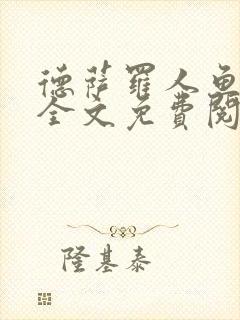 德萨罗人鱼
全文免费阅
隆基泰